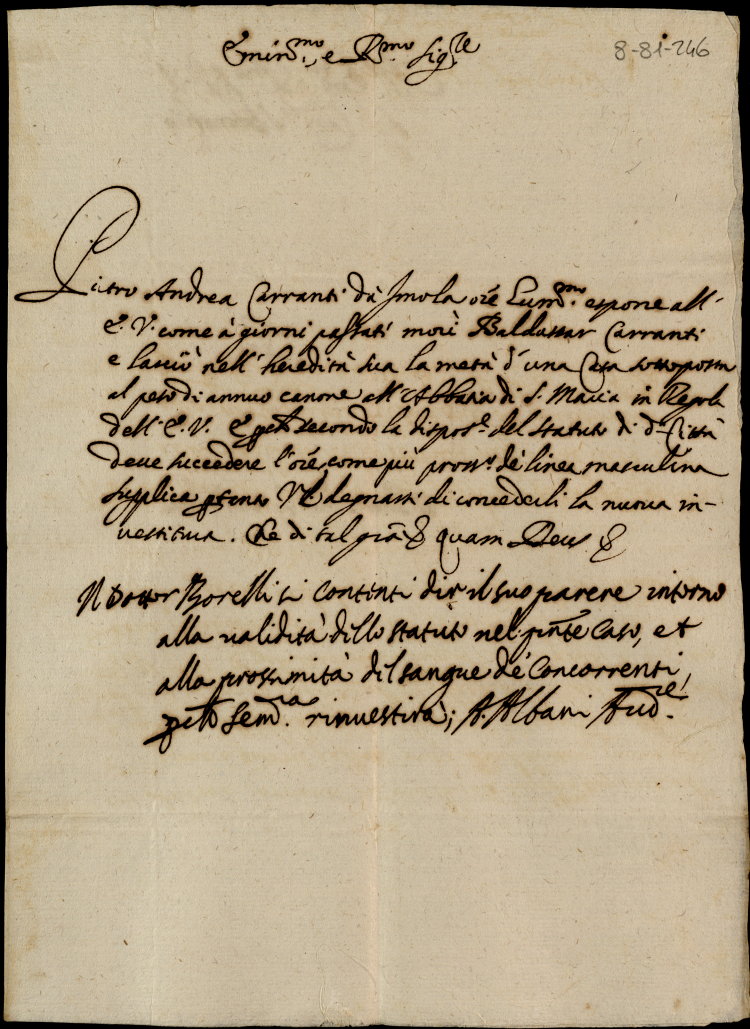 Emin.mo e R.mo Sig.re
8-81-246
Pietro Andrea Carranti da Imola ore hum.mo espone all'
E. V. come à giorni passati morì Baldassar Carranti
e lasciò nell'heredità sua la metà d'una Casa sottoposta
al peso di annuo canone all'Abbatia di S. Maria in Regola
dell'E. V. E secondo la dispos.e del statuto di d.a Città
deve succedere l'ore come più pross.o de linea masculina
supplica V. E. degnarsi di concederli la nuova in-
vestitura. Che di tal gra quam Deus
Il Dottor Borelli si contenti dir il suo parere intorno
alla validità dello statuto nel pnte caso, et
alla prossimità del sangue de Concorrenti,
rinvestirà; A. Albani Aud.re